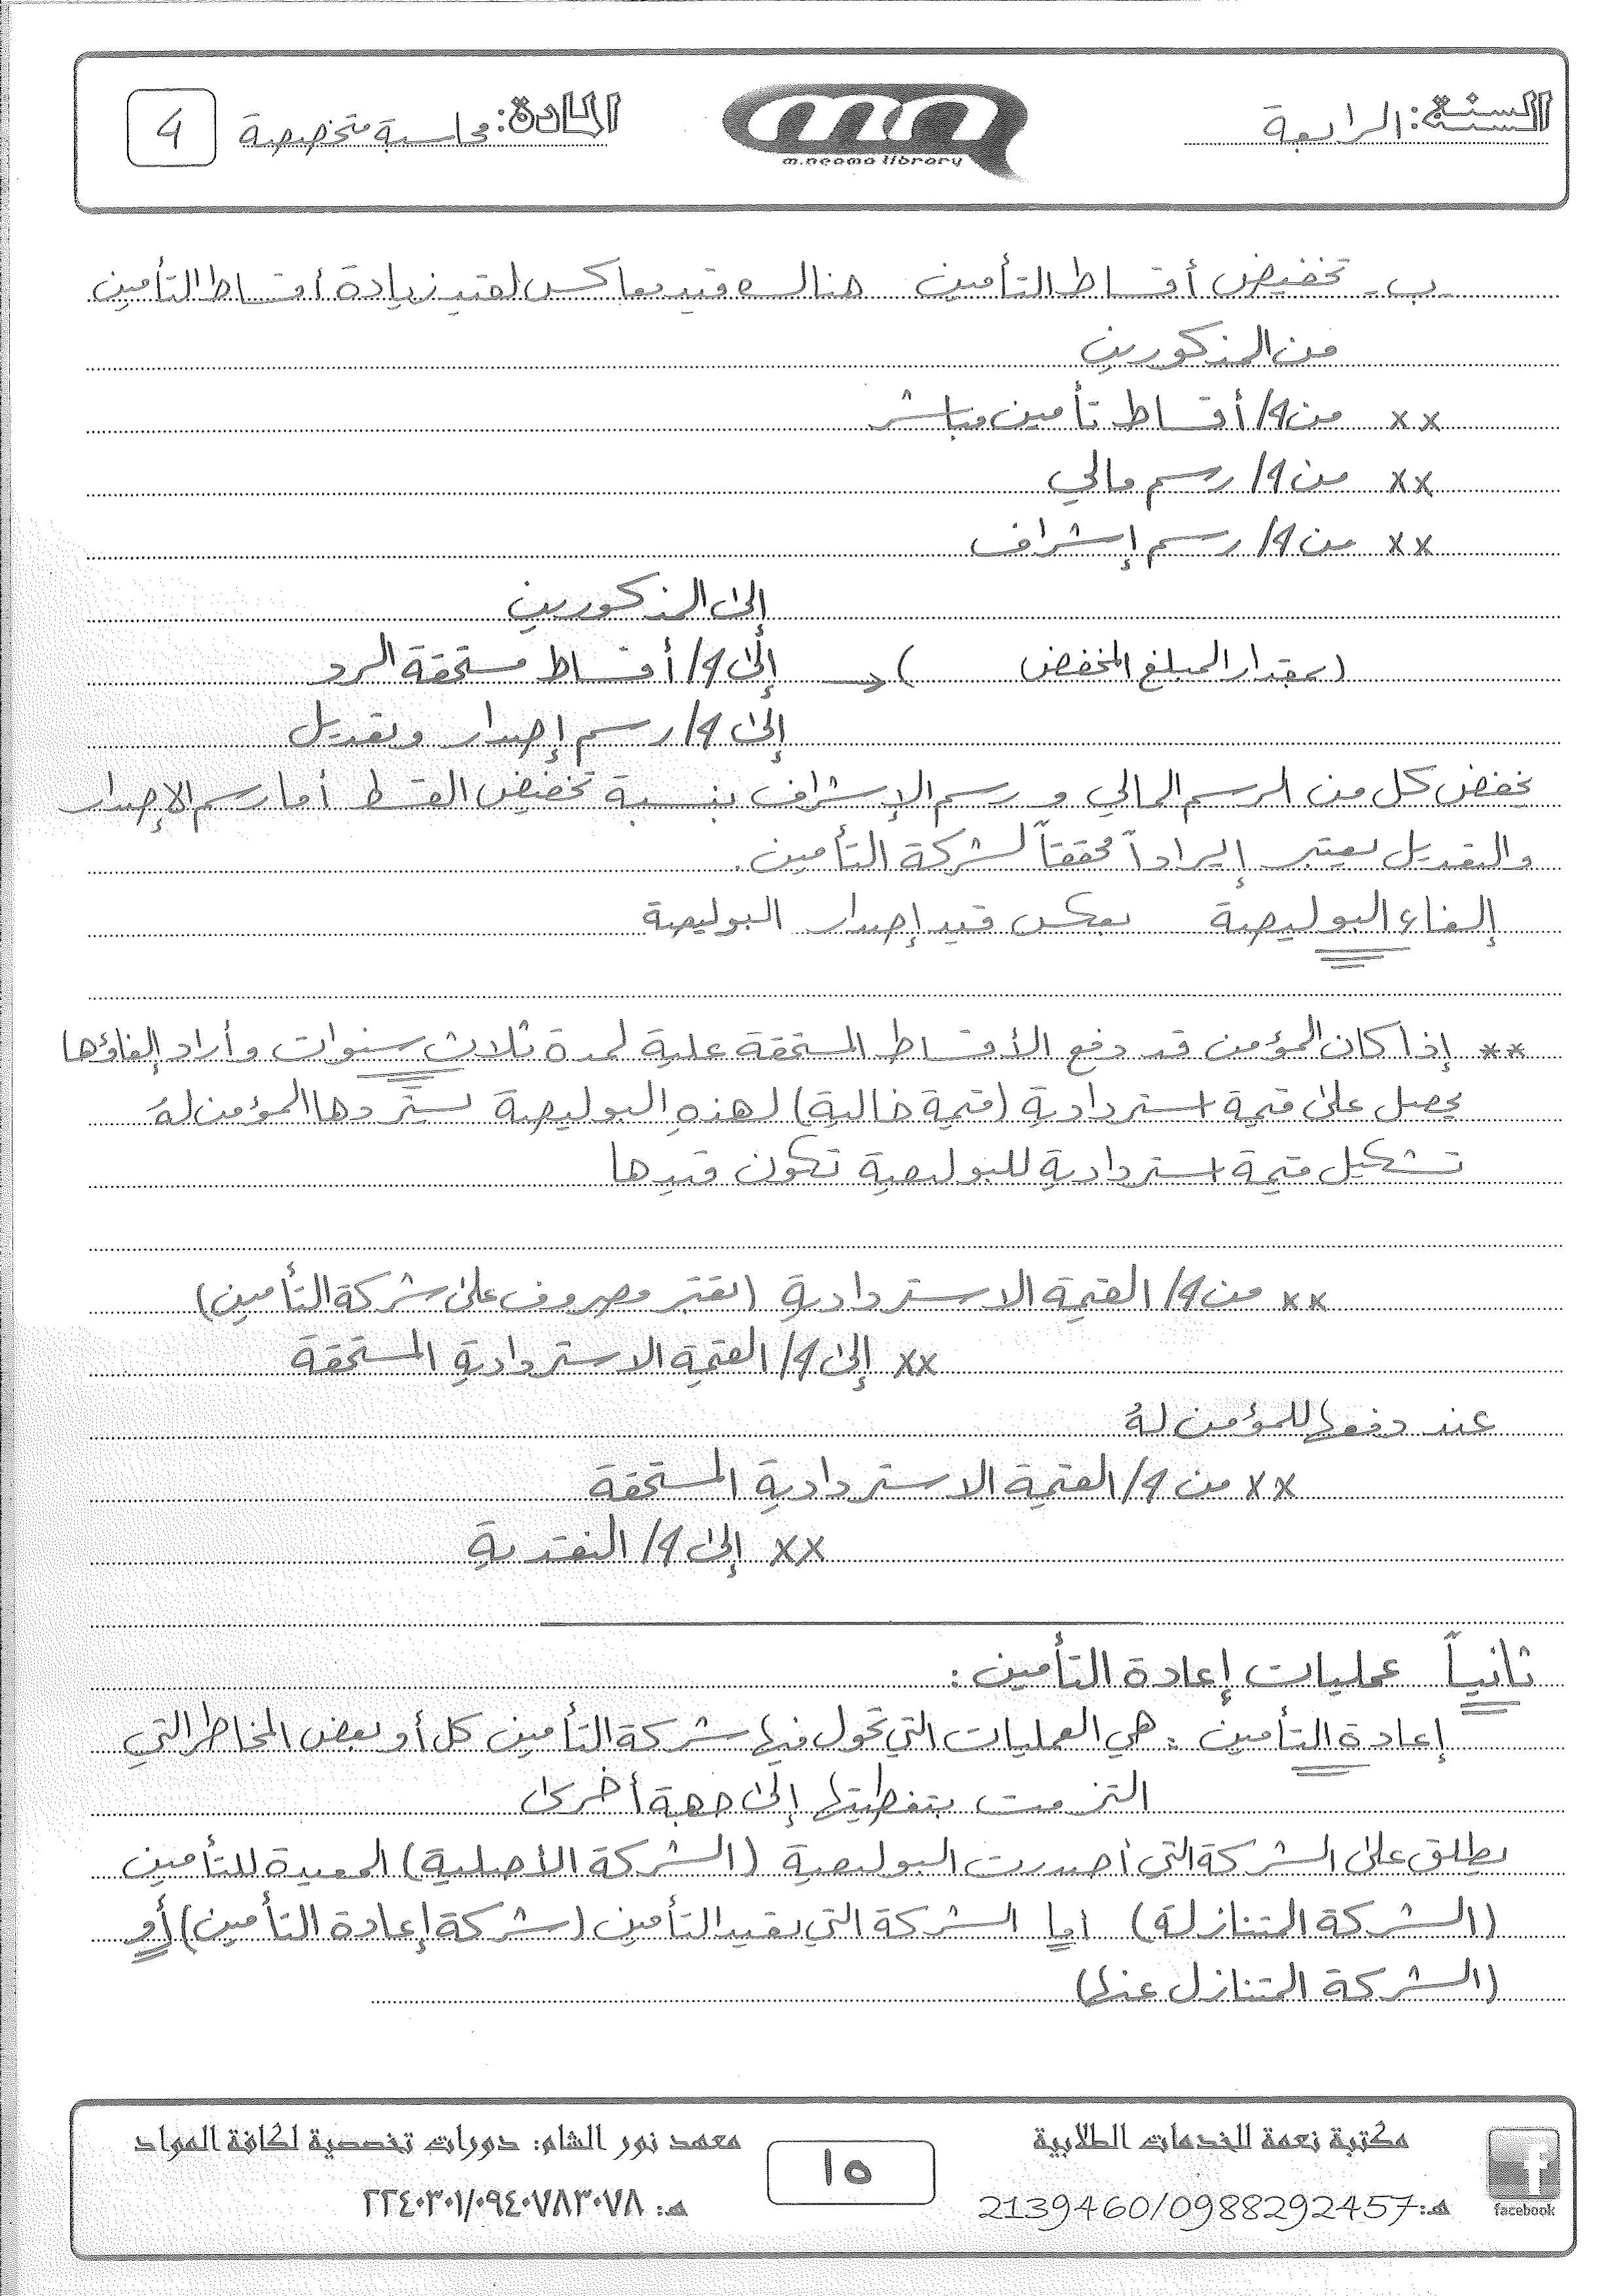 السنة: الرابعة
m.neama library
المادة: محاسبة متخصصة
4
ب- تخفيض أقساط التأمين هنالك قيد معاكس لقيد زيادة أقساط التأمين
من المذكورين
xx من ح/ أقساط تأمين مباشر
xx من ح/ رسم مالي
xx من ح/ رسم إشراف
إلى المذكورين
(بمقدار المبلغ المخفض ) إلى ح/ أقساط مستحقة الرد
إلى ح/ رسم إصدار وتعديل
يخفض كل من الرسم المالي و رسم الإشراف بنسبة تخفيض القسط أما رسم الإصدار
والتعديل يعتبر إيراداً محققاً لشركة التأمين.
إلغاء البوليصة بعكس قيد إصدار البوليصة
** إذا كان المؤمن قد دفع الأقساط المستحقة علية لمدة ثلاث سنوات وأراد إلغاؤها
يحصل على قيمة استردادية (قيمة حالية) لهذهِ البوليصة يستردها المؤمن لهُ
تشكيل قيمة استردادية للبوليصة تكون قيدها
xx من ح/ القيمة الاستردادية (تعتبر مصروف على شركة التأمين)
xx إلى ح/ القيمة الاستردادية المستحقة
عند دفعها للمؤمن لهُ
xx من ح/ القيمة الاستردادية المستحقة
xx إلى ح/ النقدية
ثانياً عمليات إعادة التأمين :
إعادة التأمين : هي العمليات التي تحول فيها شركة التأمين كل أو بعض المخاطر التي
التزمت بتغطيتها إلى جهة أخرى
يطلق على الشركة التي أصدرت البوليصة (الشركة الأصلية) المعيدة للتأمين
(الشركة المتنازلة) أما الشركة التي يعيد التأمين (شركة إعادة التأمين) أو
(الشركة المتنازل عنها)
facebook
مكتبة نعمة للخدمات الطلابية
هـ: 2139460/0988292457
١٥
معهد نور الشام: دورات تخصصية لكافة المواد
هـ: ٢٢٤٠٣٠١/٠٩٤٠٧٨٣٠٧٨